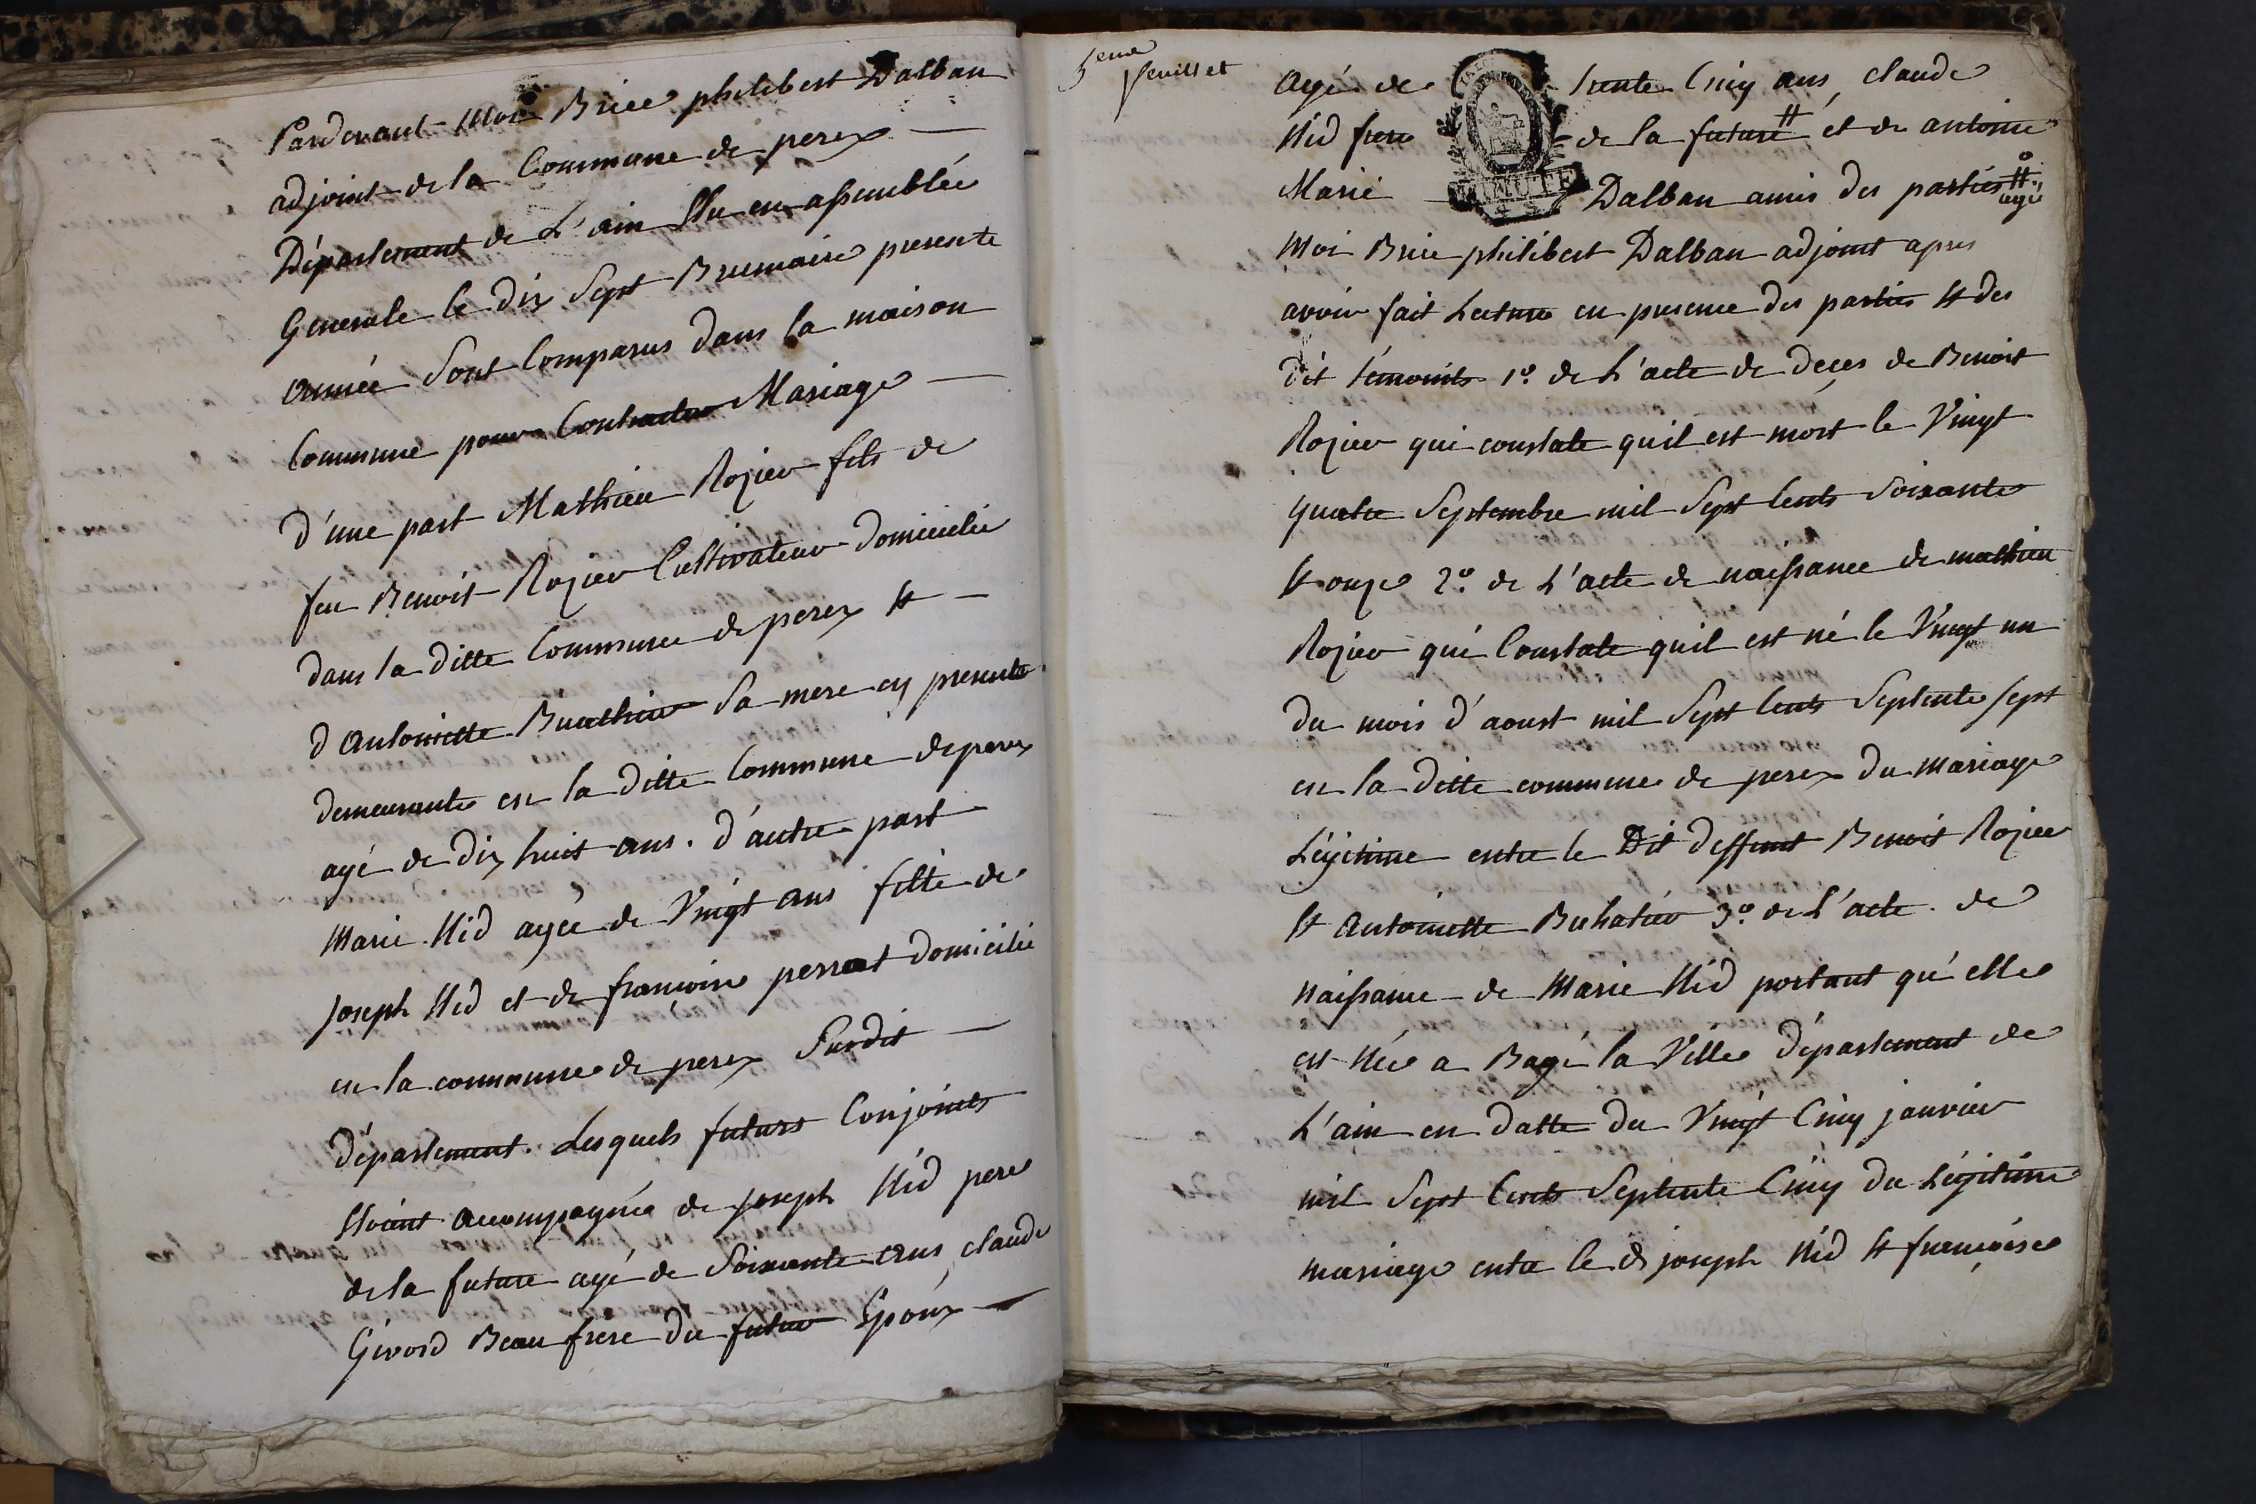 Pardevant Moi Brice philibert Dalban
adjoint de la Commune de perex
Département de L'ain Elu en assemblée
Generale le dix Sept Brumaire presente
année Sont Comparus dans la maison
Commune pour Contracter Mariage
d'une part Mathieu Rozier fils de
feu Benoit Rozier Cultivateur domiciclié
dans la ditte Commune de perex Et
d'Antoinette Buathier Sa mere cy presente
demeurante en la ditte Commune de perex
agé de dix huit ans. d'autre part
Marie Nid agée de Vingt ans fille de
Joseph Nid et de françoise perrat domicilié
en la commune de perex Susdit
département. Lesquels futurs Conjoints
Etoient accompagnée de Joseph Nid pere
de la future agé de Soixante ans, claude
Givord Beau frere du futur Epoux
5eme
feuillet
agé de trente Cinq ans, claude
Nid frere de la future # et de antoine
Marie Dalban amis des parties # agé
Moi Brice philibert Dalban adjoint apres
avoir fait Lecture en presence des parties Et des
dit témoints 1º. de L'acte de deçes de Benoit
Rozier qui constate quil est mort le Vingt
quatre Septembre mil Sept Cents Soixante
Et onze 2º. de L'acte de naissance de mathieu
Rozier qui Constate quil est né le Vingt un
du mois d'aoust mil Sept Cents Septente sept
en la ditte commune de perex du mariage
Légitime entre le Dit deffunt Benoit Rozier
Et Antoinette Buhatier 3º. de L'acte de
Naissance de Marie Nid portant qu'elle
est Née a Bagé la Ville département de
L'ain en datte du Vingt Cinq janvier
mil Sept Cents Septente Cinq du Légitime
mariage entre le d. joseph Nid Et françoise